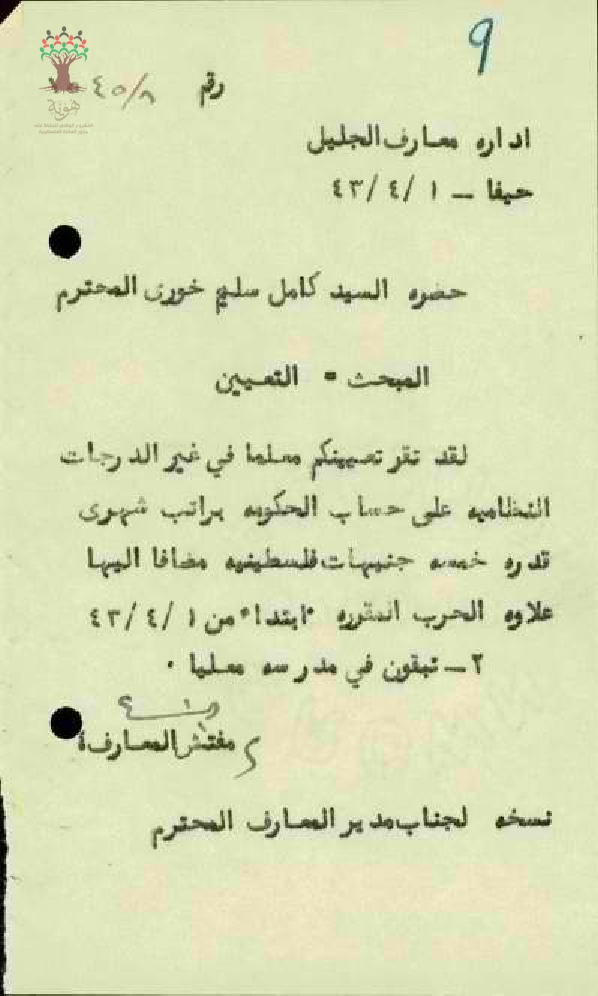 9
رقم ٤٥/٨
اداره معارف الجليل
حيفا – ٤٣/٤/١
حضره السيد كامل سليم خوري المحترم
المبحث = التعيين
لقد تقر تعيينكم معلما في غير الدرجات
النظاميه على حساب الحكومه براتب شهرى
قدره خمسه جنيهات فلسطينيه مضافا اليها
علاوه الحرب المقرره ابتداء من ٤٣/٤/١
٢ – تبقون في مدرسه معليا ٠
مفتش المعارف
نسخه لجناب مدير المعارف المحترم
هوية